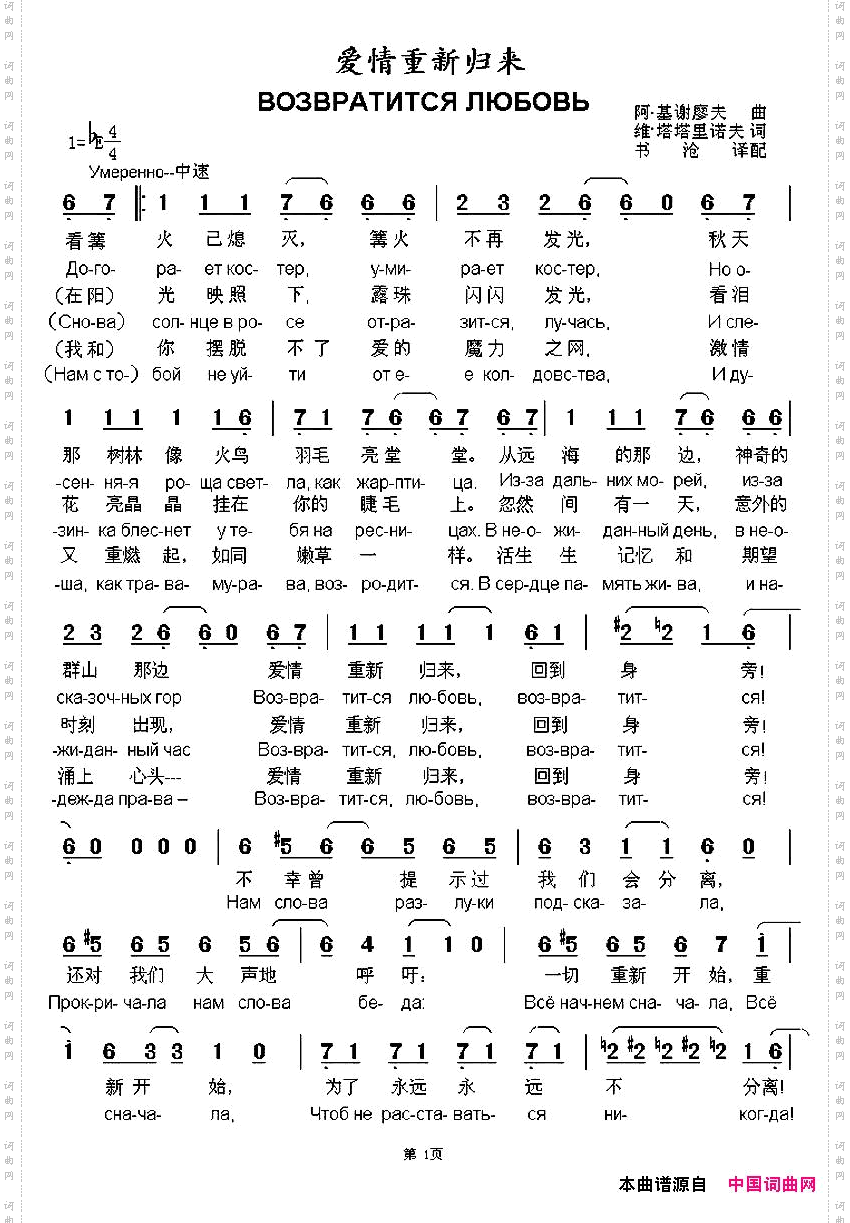 爱情重新归来
ВОЗВРАТИТСЯ ЛЮБОВЬ
阿·基谢廖夫 曲
维·塔塔里诺夫 词
书沧 译配
1=♭E 4/4
Умеренно--中速
6 7 ‖: 1 1 1 7 6 6 6 | 2 3 2 6 6 0 6 7 |
看篝 火 已熄 灭, 篝火 不再 发光, 秋天
До-го- ра- ет кос- тер, у-ми- ра-ет кос-тер, Но о-
(在阳) 光 映照 下, 露珠 闪闪 发光, 看泪
(Сно-ва) сол- нце в ро- се от-ра- зит-ся, лу-чась, И сле-
(我和) 你 摆脱 不了 爱的 魔力 之网, 激情
(Нам с то-) бой не уй- ти от е- е кол- довс-тва, И ду-
1 1 1 1 1 6 | 7 1 7 6 6 7 6 7 | 1 1 1 7 6 6 6 |
那 树林 像 火鸟 羽毛 亮堂 堂。从远 海 的那 边, 神奇的
-сен- няя ро- ща свет- ла, как жар-пти- ца. Из-за даль- них мо- рей, из-за
花 亮晶 晶 挂在 你的 睫毛 上。忽然 间 有一 天, 意外的
-зин- ка блес-нет у те- бя на рес-ни- цах. В не-о- жи- дан-ный день, в не-о-
又 重燃 起, 如同 嫩草 一 样。活生 生 记忆 和 期望
-ша, как тра-ва- му-ра- ва, воз- ро-дит- ся. В сер-дце па- мять жи- ва, и на-
2 3 2 6 6 0 6 7 | 1 1 1 1 1 6 1 | #2 ♮2 1 6 |
群山 那边 爱情 重新 归来, 回到 身 旁!
ска-зоч-ных гор Воз-вра- тит-ся лю-бовь, воз-вра- тит- ся!
时刻 出现, 爱情 重新 归来, 回到 身 旁!
-жи-дан- ный час Воз-вра- тит-ся, лю-бовь, воз-вра- тит- ся!
涌上 心头--- 爱情 重新 归来, 回到 身 旁!
-деж-да пра-ва – Воз-вра- тит-ся, лю-бовь, воз-вра- тит- ся!
6 0 0 0 0 | 6 #5 6 6 5 6 5 | 6 3 1 1 6 0 |
不 幸曾 提 示过 我 们 会 分 离,
Нам сло-ва раз- лу-ки под- ска- за- ла,
6 #5 6 5 6 5 6 | 6 4 1 1 0 | 6 #5 6 5 6 7 1 |
还对 我们 大 声地 呼 吁: 一切 重新 开 始, 重
Прок-ри- ча-ла нам сло-ва бе- да: Всё нач-нем сна- ча- ла, Всё
1 6 3 3 1 0 | 7 1 7 1 7 1 7 1 | ♮2 #2 ♮2 #2 ♮2 1 6 |
新 开 始, 为了 永远 永 远 不 分离!
сна-ча- ла, Чтоб не рас-ста- вать- ся ни- ког-да!
第 1页
本曲谱源自 中国词曲网
词曲网